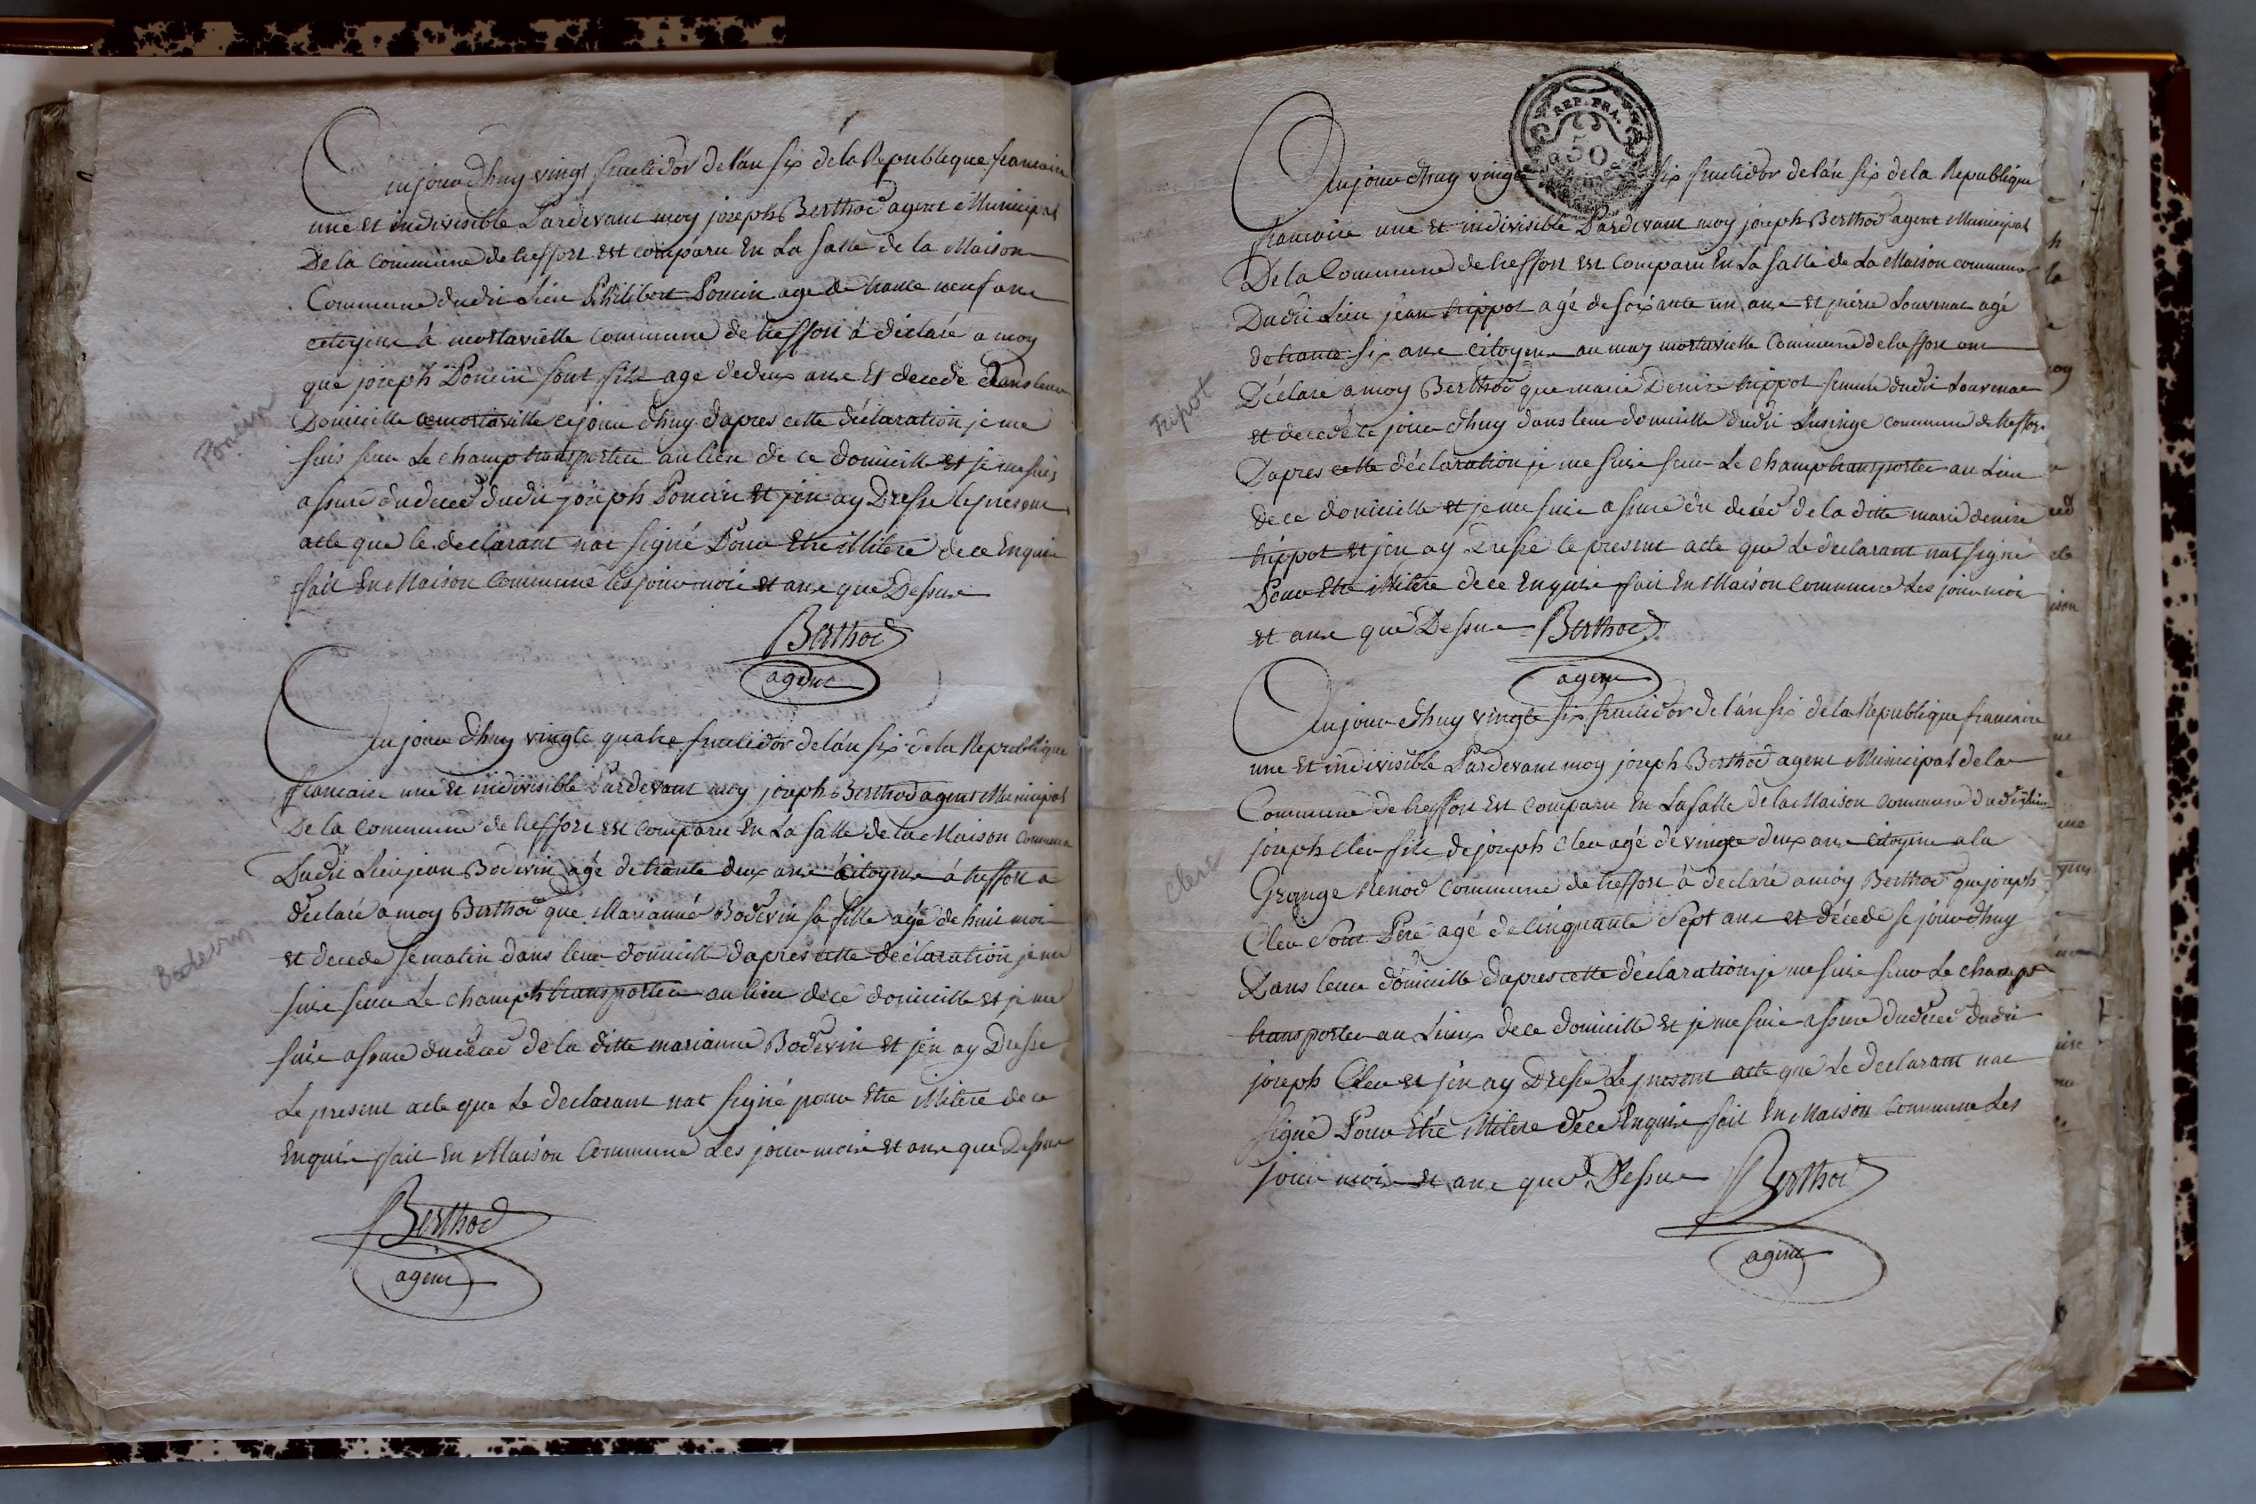 Aujourdhuy vingt fructidor de lan six de la Republique francaise
une et indivisible Pardevant moy joseph Berthod agent Municipal
De la commune de treffort est comparu En La salle de la Maison
Commune dudit Lieu Philibert Poncin age de trante neuf ans
citoyens à montavielle commune de treffort à déclaré a moy
que joseph Poncin sont fils age de deux ans Et decede dans leur
Domicille ce jour dhuy dapres cette déclaration je me
suis seur Le champ transporter au lieu de ce domicille et je me suis
assuré du decéd dudit joseph Poncin et jen ay Dressé le present
acte que le declarant nat signé Pour Etre illitere de ce Enquis
fait En Maison Commune les jour mois et ans que Dessus
Berthod
agent
Poncin
Aujour dhuy vingte quatre fructidor de lan six de la Republique
francaise une et indivisible Pardevant moy joseph Berthod agent Municipal
De la commune de treffort est comparu En La salle de la Maison commune
Dudit Lieu jean Bodevin agé de trante deux ans citoyens à treffort a
déclaré à moy Berthod que Marianne Bodevin sa fille agé de huit mois
et decede se matin dans leur domicille dapres cette déclaration je me
suis seur Le champ transporter au lieu de ce domicille et je me
suis assuré du decéd de la ditte marianne Bodevin et jen ay Dressé
Le present acte que Le declarant nat signé pour Etre illitere de ce
Enquis fait En Maison Commune Les jour mois et ans que Dessus
Berthod
agent
Bodevin
REP. FRA.
50
Aujour dhuy vingte six fructidor de lan six de la Republique
francaise une et indivisible Pardevant moy joseph Berthod agent Municipal
De la Commune de treffort est Comparu En La salle de La Maison commune
Dudit Lieu jean trippot agé de soixante un ans et pierre Louvenat agé
de trante six ans citoyens au may montavielle Commune de treffort ont
Déclaré a moy Berthod que marie Denise trippot femme dudit Louvenat
et decede ce jour dhuy dans leur domicille dudit commune de treffort
Dapres cette déclaration je me suis seur Le champ transporter au Lieu
de ce domicille et je me suis assuré du decéd de la ditte marie denise
trippot et jen ay Dressé le present acte que Le declarant nat signé
Pour Etre illitere de ce Enquis fait En Maison Commune Les jour mois
et ans que Dessus Berthod
agent
Tripot
Aujour dhuy vingte six fructidor de lan six de la Republique francaise
une et indivisible Pardevant moy joseph Berthod agent Municipal de la
Commune de treffort est comparu En La salle de la Maison commune dudit Lieu
joseph Cler fils de joseph Cler agé de vingte deux ans citoyens a la
Grange Renod commune de treffort à declaré a moy Berthod que joseph
Cler sont Pere agé de cinquante sept ans et décede se jour dhuy
Dans leur domicille dapres cette déclaration je me suis seur Le champt
transporter au Lieux de ce domicille et je me suis assuré du decéd dudit
joseph Cler et jen ay Dressé Le present acte que Le declarant nat
signé Pour Etre illitere de ce Enquis fait En Maison Commune Les
jour mois et ans que Dessus Berthod
agent
Clerc